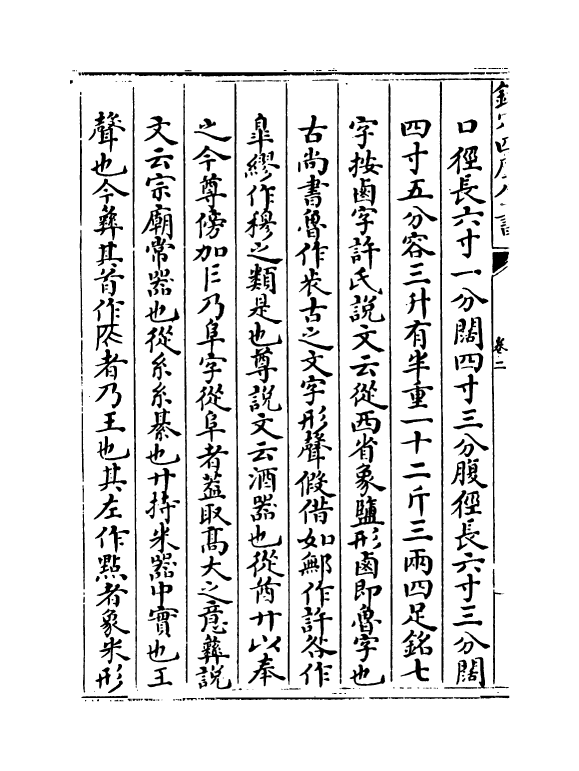 欽定四庫全書
卷二
口徑長六寸一分闊四寸三分腹徑長六寸三分闊
四寸五分容三升有半重一十二斤三兩四足銘七
字按鹵字許氏說文云從西省象鹽形鹵即魯字也
古尚書魯作㳟古之文字形聲假借如鄦作許咎作
臯繆作穆之類是也尊說文云酒器也從酋廾以奉
之今尊傍加𨸏乃阜字從阜者葢取髙大之意彝說
文云宗廟常器也從糸糸綦也廾持米器中實也彑
聲也今彝其首作者乃王也其左作點者象米形